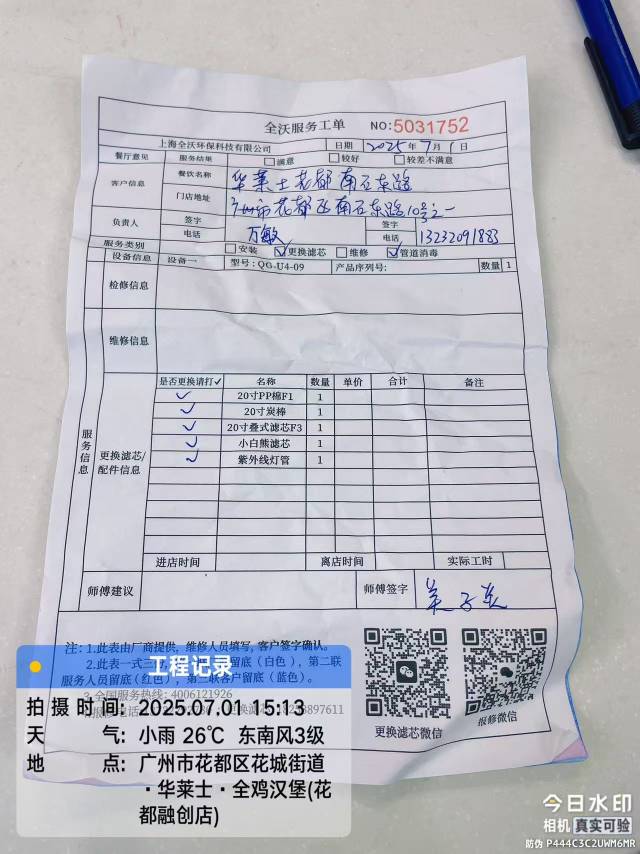 全沃服务工单 NO:5031752
上海全沃环保科技有限公司 日期 2025年7月1日
餐厅意见 服务结果 □满意 □较好 □较差不满意
客户信息 餐饮名称 华莱士花都南石东路
门店地址 广州市花都区南石东路10号之一
负责人 签字 万敏 签字
电话 电话 13232091883
服务类别 □安装 ☑更换滤芯 □维修 ☑管道消毒
设备信息 设备一 型号:QG-U4-09 产品序列号: 数量 1
检修信息
维修信息
服务信息
更换滤芯/配件信息
是否更换请打✓ 名称 数量 单价 合计 备注
✓ 20寸PP棉F1 1
✓ 20寸炭棒 1
✓ 20寸叠式滤芯F3 1
✓ 小白熊滤芯 1
✓ 紫外线灯管 1
进店时间 离店时间 实际工时
师傅建议 师傅签字
注: 1.此表由厂商提供，维修人员填写，客户签字确认。
2.此表一式三 留底（白色），第二联
服务人员留底（红色），第三联客户留底（蓝色）。
3.全国服务热线: 4006121926
更换滤芯微信
报修微信
工程记录
拍摄时间: 2025.07.01 15:13
天气: 小雨 26℃ 东南风3级
地点: 广州市花都区花城街道
·华莱士·全鸡汉堡(花
都融创店)
今日水印
相机 真实可验
防伪 P444C3C2UWM6MR